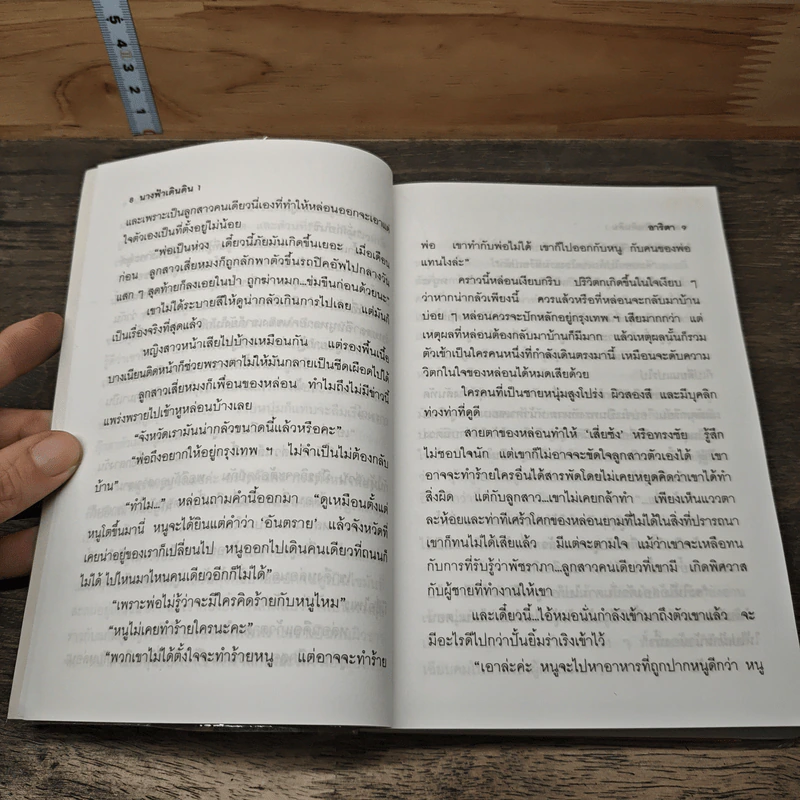 5
4
3
2
1
8 นางฟ้าเดินดิน 1
และเพราะเป็นลูกสาวคนเดียวนี่เองที่ทำให้หล่อนออกจะเอาแต่
ใจตัวเองเป็นที่ตั้งอยู่ไม่น้อย
“พ่อเป็นห่วง เดี๋ยวนี้ภัยมันเกิดขึ้นเยอะ เมื่อเดือน
ก่อน ลูกสาวเสี่ยหมงก็ถูกลักพาตัวขึ้นรถปิคอัพไปกลางวัน
แสก ๆ สุดท้ายก็ลงเอยในป่า ถูกฆ่าหมก...ข่มขืนก่อนด้วยนะ”
เขาไม่ได้ระบายสีให้ดูน่ากลัวเกินการไปเลย แต่มันก็
เป็นเรื่องจริงที่สุดแล้ว
หญิงสาวหน้าเสียไปบ้างเหมือนกัน แต่รองพื้นเนื้อ
บางเนียนติดหน้าก็ช่วยพรางตาไม่ให้มันกลายเป็นซีดเผือดไปได้
ลูกสาวเสี่ยหมงก็เพื่อนของหล่อน ทำไมถึงไม่มีข่าวนี้
แพร่งพรายไปเข้าหูหล่อนบ้างเลย
“จังหวัดเรามันน่ากลัวขนาดนี้แล้วหรือคะ”
“พ่อถึงอยากให้อยู่กรุงเทพ ฯ ไม่จำเป็นไม่ต้องกลับ
บ้าน”
“ทำไม...” หล่อนถามคำนี้ออกมา “ดูเหมือนตั้งแต่
หนูโตขึ้นมานี่ หนูจะได้ยินแต่คำว่า ‘อันตราย’ แล้วจังหวัดที่
เคยน่าอยู่ของเราก็เปลี่ยนไป หนูออกไปเดินคนเดียวที่ถนนก็
ไม่ได้ ไปไหนมาไหนคนเดียวอีกก็ไม่ได้”
“เพราะพ่อไม่รู้ว่าจะมีใครคิดร้ายกับหนูไหม”
“หนูไม่เคยทำร้ายใครนะคะ”
“พวกเขาไม่ได้ตั้งใจจะทำร้ายหนู แต่อาจจะทำร้าย
อาริตา ๑
พ่อ เขาทำกับพ่อไม่ได้ เขาก็ไปออกกับหนู กับคนของพ่อ
แทนไงล่ะ”
คราวนี้หล่อนเงียบกริบ ปริวิตกเกิดขึ้นในใจเงียบ ๆ
ว่าหากน่ากลัวเพียงนี้ ควรแล้วหรือที่หล่อนจะกลับมาบ้าน
บ่อย ๆ หล่อนควรจะปักหลักอยู่กรุงเทพ ฯ เสียมากกว่า แต่
เหตุผลที่หล่อนต้องกลับมาบ้านก็มีมาก แล้วเหตุผลนั้นก็รวม
ตัวเข้าเป็นใครคนหนึ่งที่กำลังเดินตรงมานี้ เหมือนจะดับความ
วิตกในใจของหล่อนได้หมดเสียด้วย
ใครคนที่เป็นชายหนุ่มสูงโปร่ง ผิวสองสี และมีบุคลิก
ท่วงท่าที่ดูดี
สายตาของหล่อนทำให้ ‘เสี่ยซ้ง’ หรือทรงชัย รู้สึก
ไม่ชอบใจนัก แต่เขาก็ไม่อาจจะขัดใจลูกสาวตัวเองได้ เขา
อาจจะทำร้ายใครอื่นได้สารพัดโดยไม่เคยหยุดคิดว่าเขาได้ทำ
สิ่งผิด แต่กับลูกสาว...เขาไม่เคยกล้าทำ เพียงเห็นแววตา
ละห้อยและท่าที่เศร้าโศกของหล่อนยามที่ไม่ได้ในสิ่งที่ปรารถนา
เขาก็ทนไม่ได้เสียแล้ว มีแต่จะตามใจ แม้ว่าเขาจะเหลือทน
กับการที่รับรู้ว่าพัชราภา...ลูกสาวคนเดียวที่เขามี เกิดพิศวาส
กับผู้ชายที่ทำงานให้เขา
และเดี๋ยวนี้...ไอ้หมอนั่นกำลังเข้ามาถึงตัวเขาแล้ว จะ
มีอะไรดีไปกว่าปั้นยิ้มร่าเริงเข้าไว้
“เอาล่ะค่ะ หนูจะไปหาอาหารที่ถูกปากหนูดีกว่า หนู